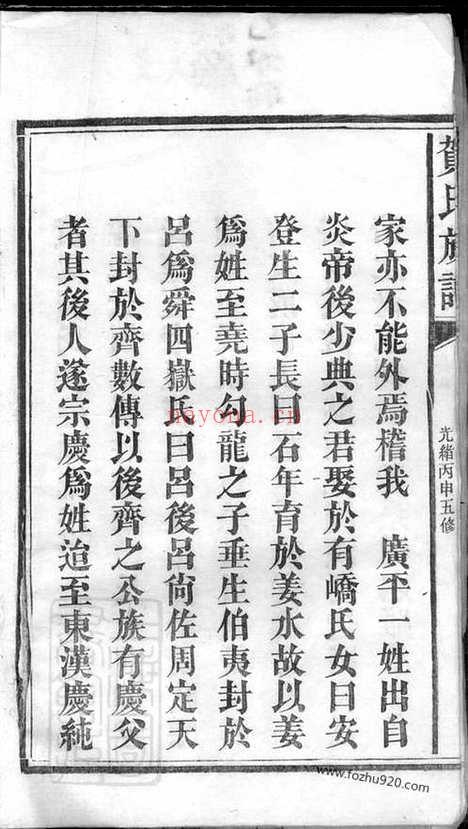 賀氏族譜
光緒丙申五修
家亦不能外焉稽我　廣平一姓出自
炎帝後少典之君娶於有嶠氏女曰安
登生二子長曰石年育於姜水故以姜
爲姓至堯時勾龍之子垂生伯夷封於
呂爲舜四嶽氏曰呂後呂尙佐周定天
下封於齊數傳以後齊之公族有慶父
者其後人遂宗慶爲姓迨至東漢慶純
nayona.cn
www.fozhu920.com